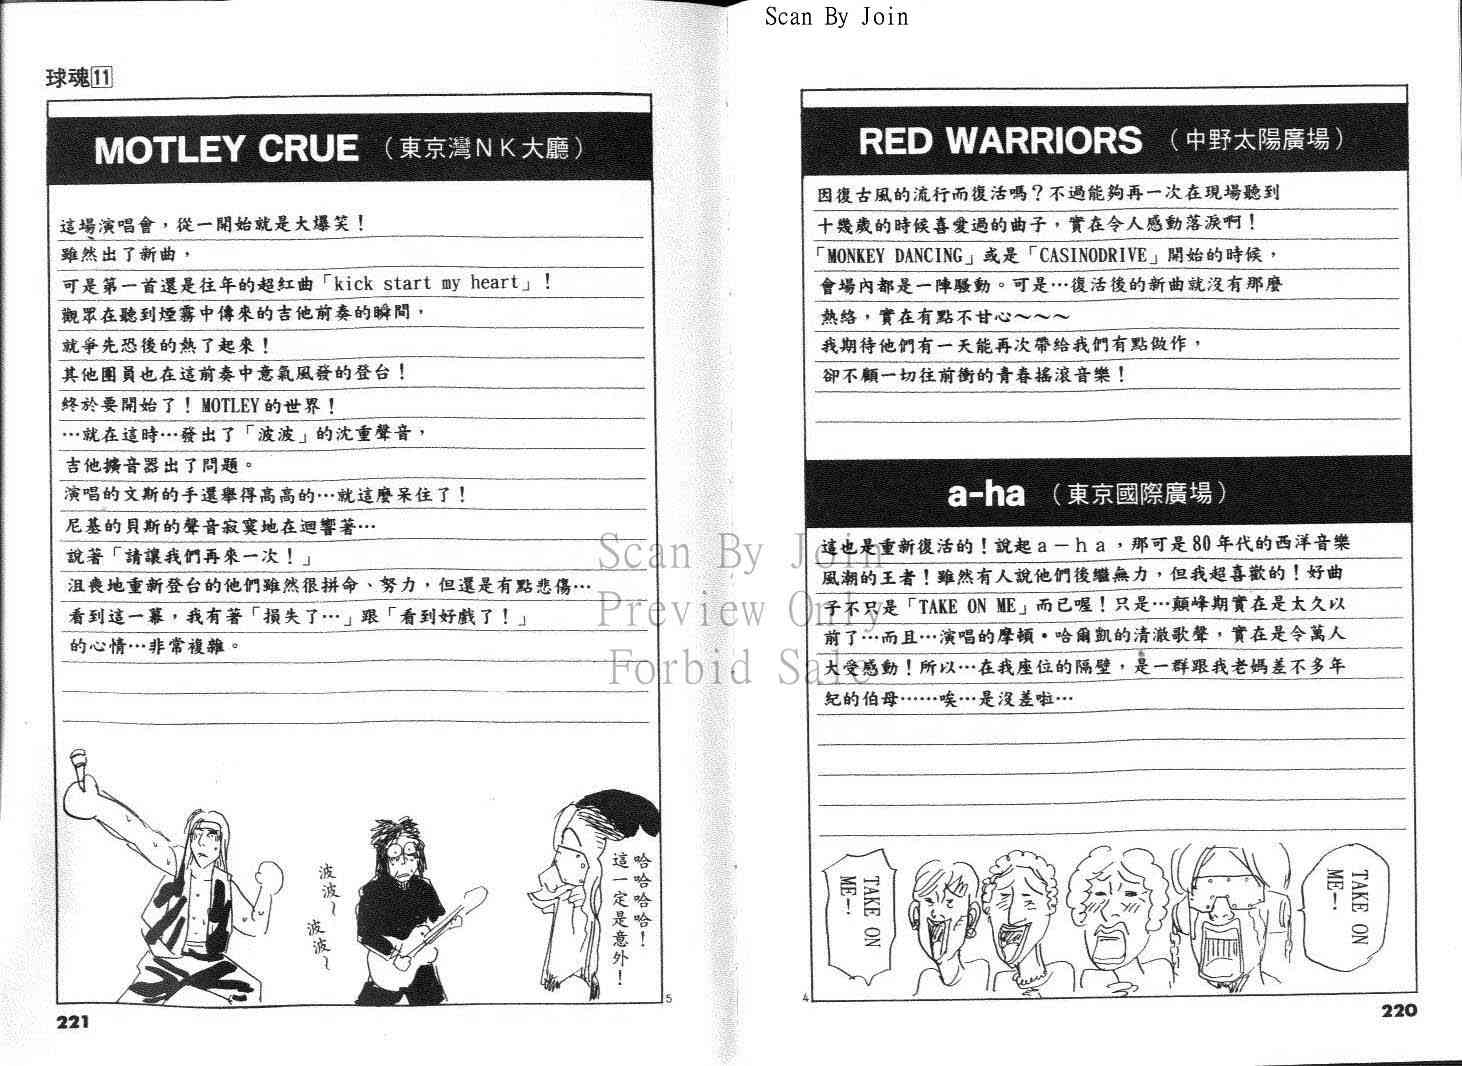 Scan By Join
RED WARRIORS（中野太陽廣場）
因復古風的流行而復活嗎？不過能夠再一次在現場聽到
十幾歲的時候喜愛過的曲子，實在令人感動落淚啊！
「MONKEY DANCING」或是「CASINODRIVE」開始的時候，
會場內都是一陣騷動。可是…復活後的新曲就沒有那麼
熱絡，實在有點不甘心～～～
我期待他們有一天能再次帶給我們有點做作，
卻不顧一切往前衝的青春搖滾音樂！
a-ha（東京國際廣場）
這也是重新復活的！說起ａ－ｈａ，那可是80年代的西洋音樂
風潮的王者！雖然有人說他們後繼無力，但我超喜歡的！好曲
子不只是「TAKE ON ME」而已喔！只是…顛峰期實在是太久以
前了…而且…演唱的摩頓•哈爾凱的清澈歌聲，實在是令萬人
大受感動！所以…在我座位的隔壁，是一群跟我老媽差不多年
紀的伯母……唉…是沒差啦…
TAKE ON
ME~!
TAKE ON
ME~!
4
220
球魂11
MOTLEY CRUE（東京灣ＮＫ大廳）
這場演唱會，從一開始就是大爆笑！
雖然出了新曲，
可是第一首還是往年的超紅曲「kick start my heart」！
觀眾在聽到煙霧中傳來的吉他前奏的瞬間，
就爭先恐後的熱了起來！
其他團員也在這前奏中意氣風發的登台！
終於要開始了！MOTLEY的世界！
…就在這時…發出了「波波」的沈重聲音，
吉他擴音器出了問題。
演唱的文斯的手還舉得高高的…就這麼呆住了！
尼基的貝斯的聲音寂寞地在迴響著…
說著「請讓我們再來一次！」
沮喪地重新登台的他們雖然很拼命、努力，但還是有點悲傷…
看到這一幕，我有著「損失了…」跟「看到好戲了！」
的心情…非常複雜。
哈哈哈哈！
這一定是意外！
波波~
波波~
5
221
Scan By Join
Preview Only
Forbid Sale